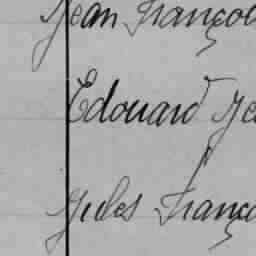 Jean Françoi
Edouard Je
Jules Franço